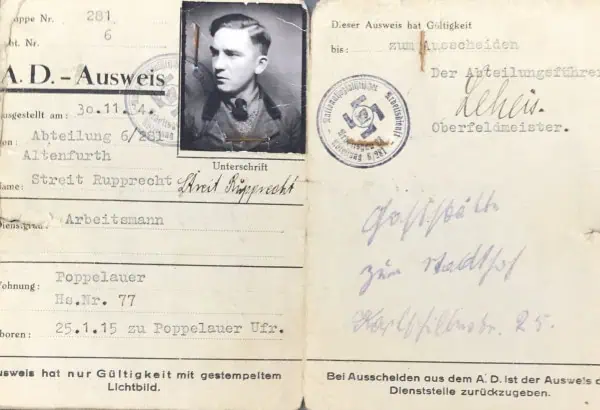 ppe Nr. 281
bt. Nr. 6
A.D.-Ausweis
usgestellt am: 30.11.
on: Abteilung 6/281
Altenfurth
Unterschrift
ame: Streit Rupprecht Streit Rupprecht
Dienstgrad: Arbeitsmann
ohnung: Poppelauer
Hs.Nr. 77
boren: 25.1.15 zu Poppelauer Ufr.
usweis hat nur Gültigkeit mit gestempeltem
Lichtbild.
Dieser Ausweis hat Gültigkeit
bis: zum Ausscheiden
Der Abteilungsführer
Oberfeldmeister.
Nationalsozialistischer Arbeitsdienst
Abteilung 6/281
Gaststätte
zum Stadthof
25.
Bei Ausscheiden aus dem A.D. ist der Ausweis d
Dienststelle zurückzugeben.